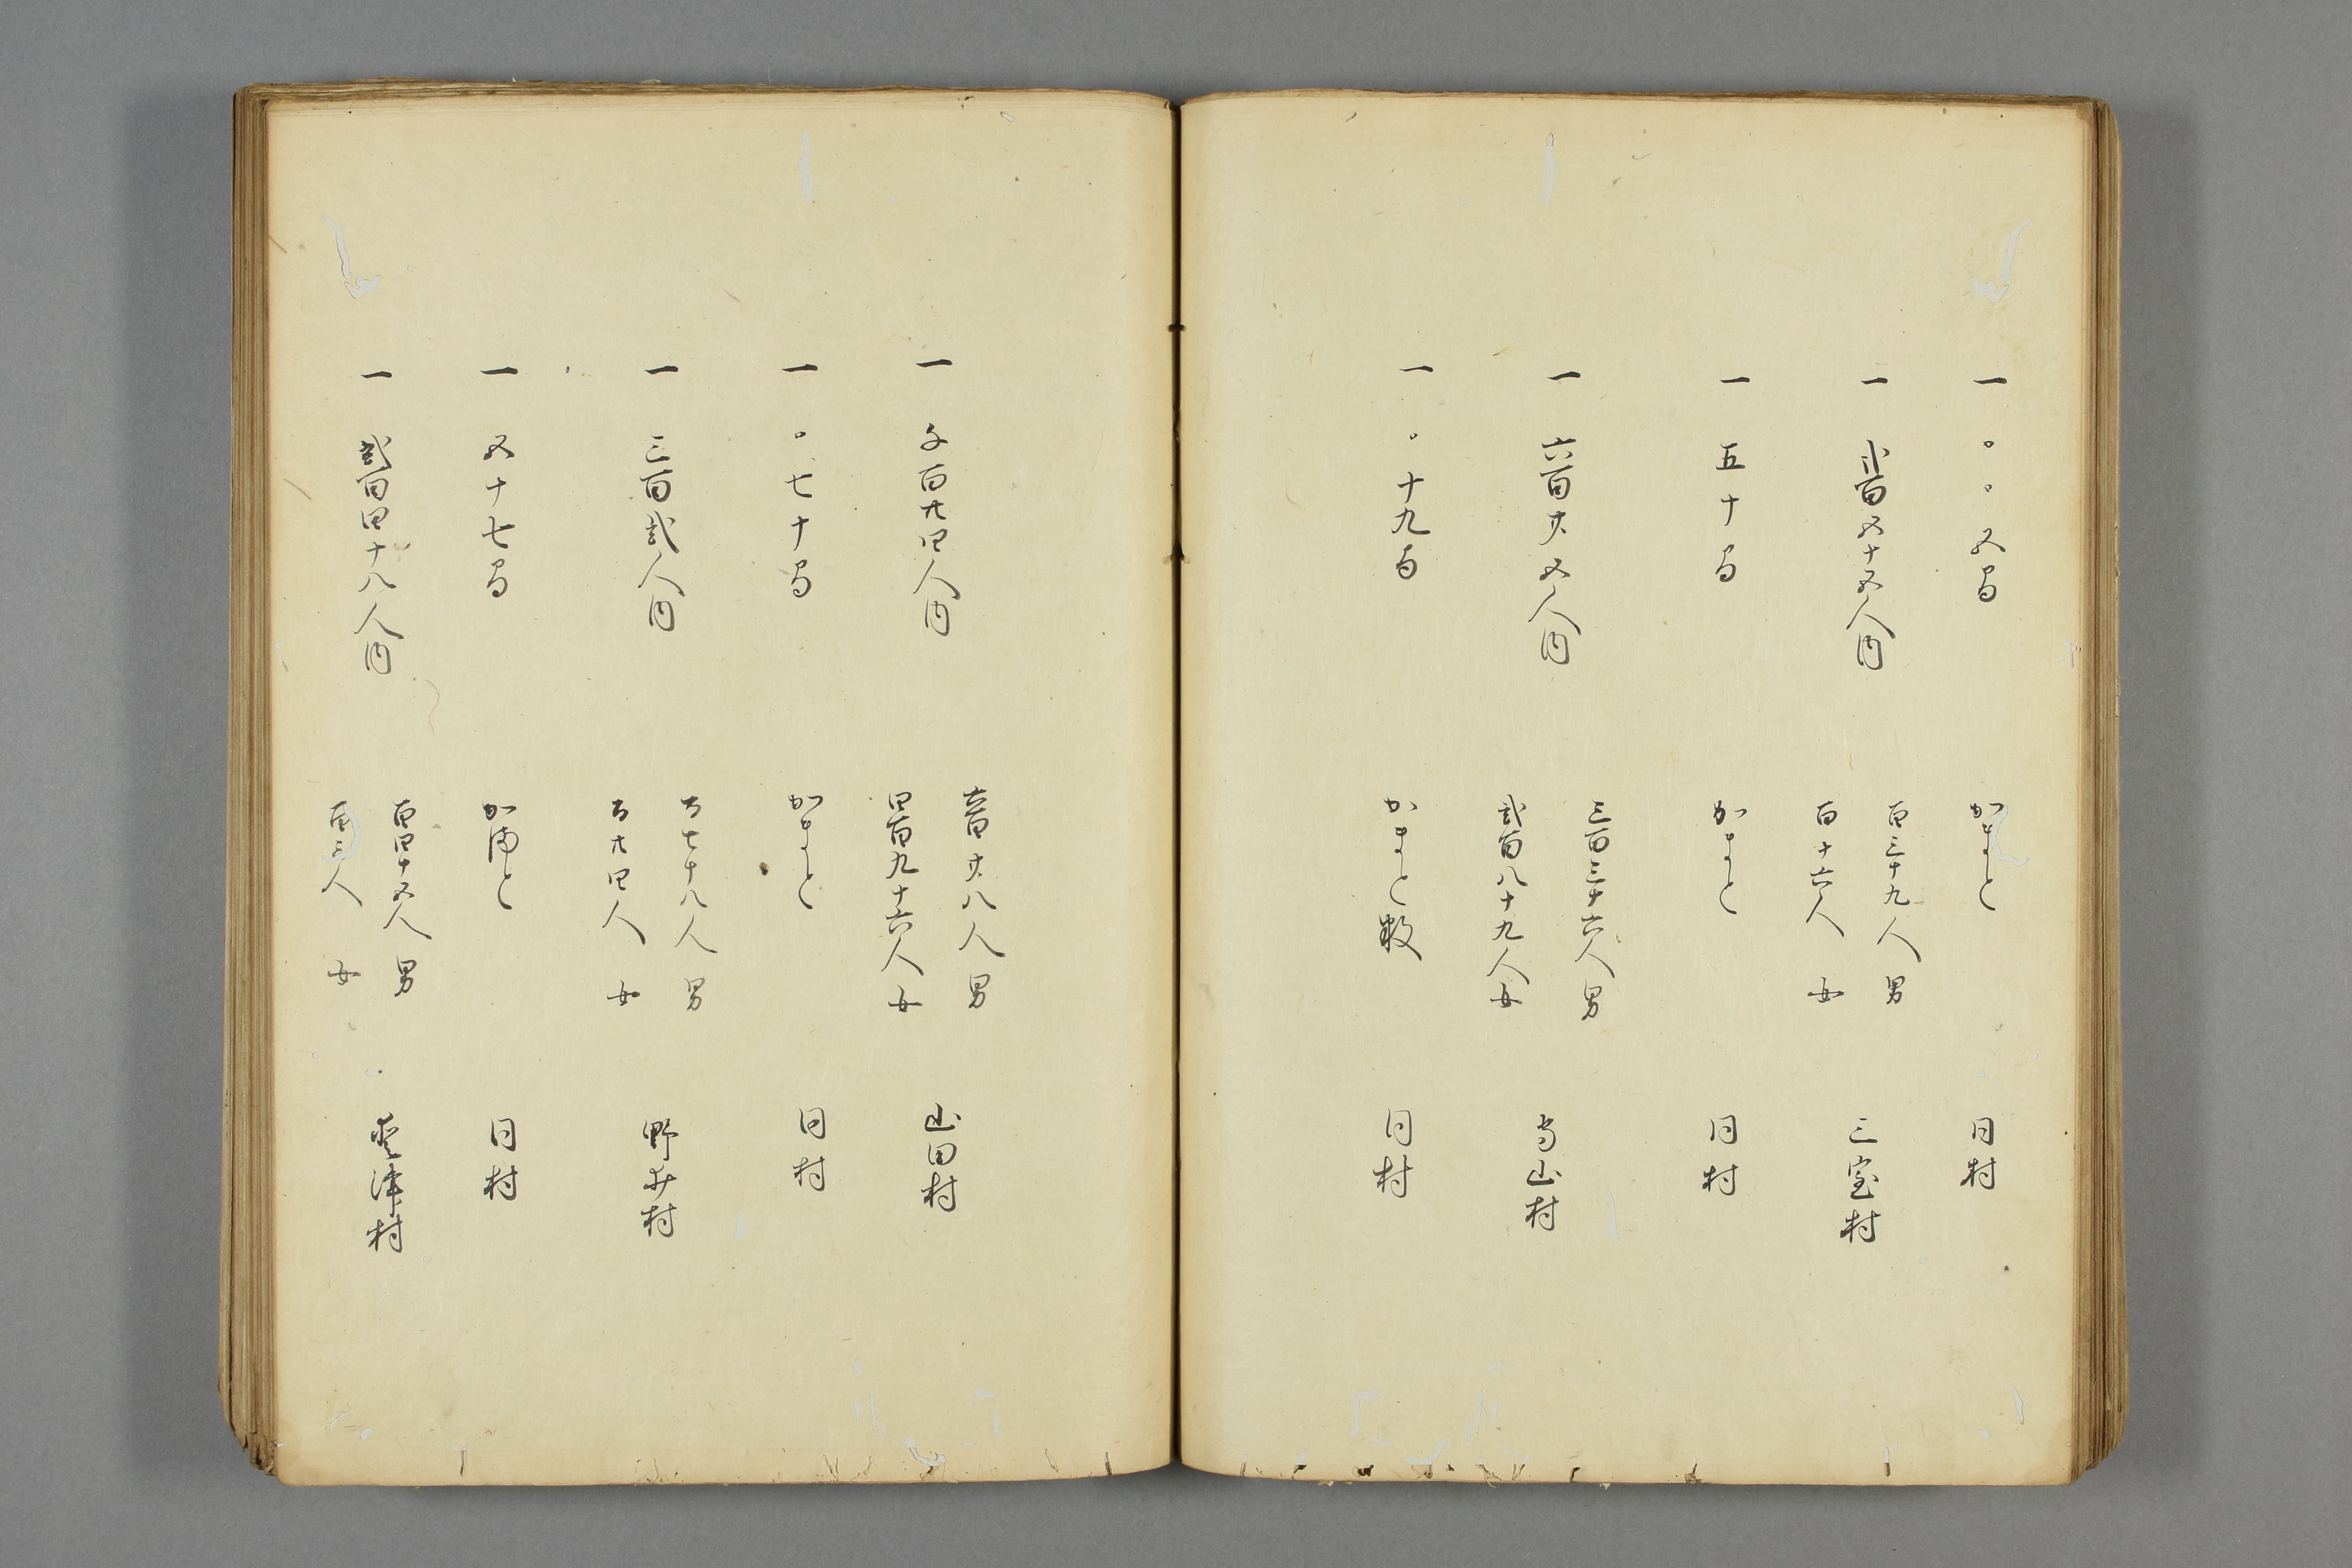 一 〇〇五間 かまと 同村
一 弐百五十五人内 百三十九人 男 三室村
百十六人 女
一 五十間 かまと 同村
一 六百廿五人内 三百三十六人男 当山村
弐百八十九人女
一 〇十九間 かまと数 同村
一 千百廿四人内 六百廿八人 男 山田村
四百九十六人女
一 〇七十間 かまと 同村
一 三百弐人内 百七十八人 男 野井村
百廿四人 女
一 五十七間 かまと 同村
一 弐百四十八人内 百四十五人 男 津村
百三人 女